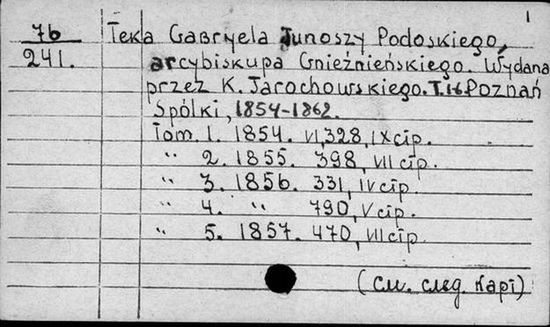 1
76
241.
Teka Gabryela Junoszy Podoskiego,
arcybiskupa Gnieźnieńskiego. Wydana
przez K. Jarochowskiego. T.1-6. Poznań
Spólki, 1854-1862.
Tom 1. 1854. VI, 328, IX стр.
" 2. 1855. 398, VII стр.
" 3. 1856. 331, IV стр.
" 4. " 790, V стр.
" 5. 1857. 470, VII стр.
(См. след. карт)